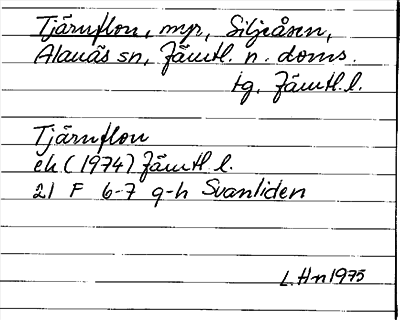 Tjärnflon, myr, Siljeåsen,
Alanäs sn, Jämtl. n. doms.
tg, Jämtl. l.
Tjärnflon
ek (1974) Jämtl l.
21 F 6-7 g-h Svanliden
L. Hn 1975